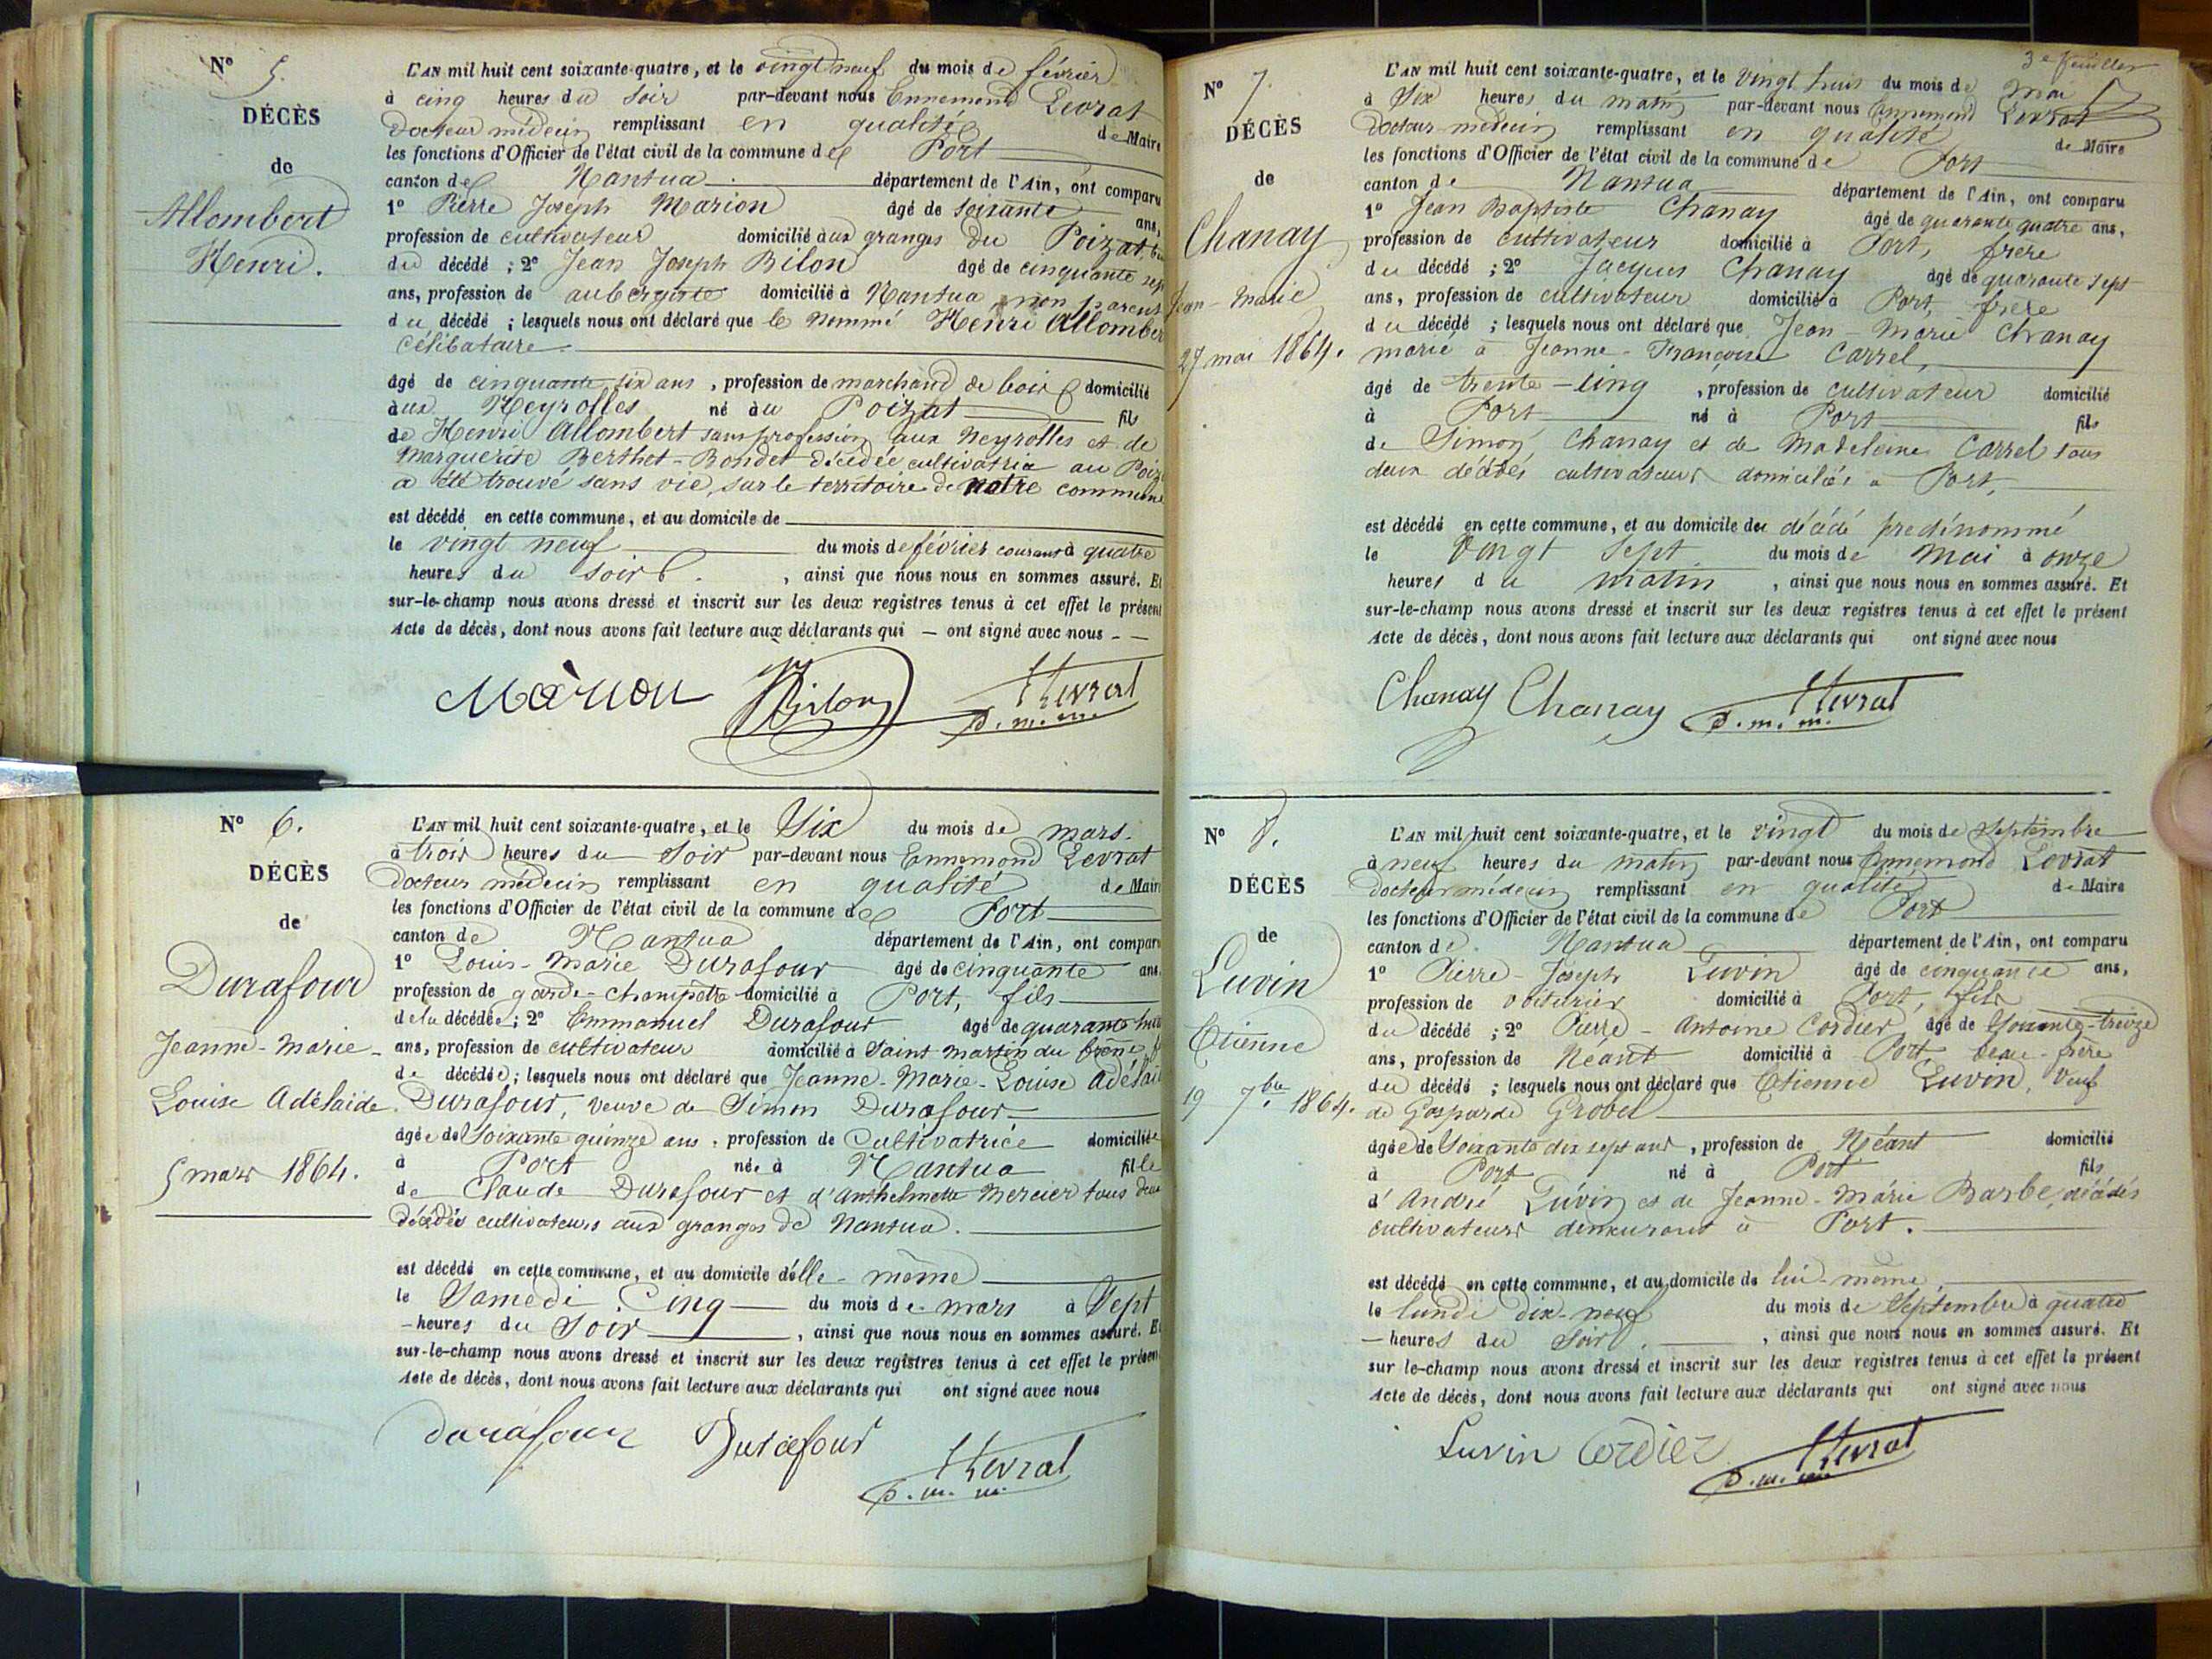 N° 5.
DÉCÈS
de
Allombert
Henri.
L'AN mil huit cent soixante-quatre, et le vingt neuf du mois de février
à cinq heures du soir par-devant nous Ennemond Levrat
Docteur médecin remplissant en qualité de Maire
les fonctions d'Officier de l'état civil de la commune de Port
canton de Nantua département de l'Ain, ont comparu
1° Pierre Joseph Marion âgé de soixante ans,
profession de cultivateur domicilié aux granges du Poizat,
du décédé ; 2° Jean Joseph Bilon âgé de cinquante sept
ans, profession de aubergiste domicilié à Nantua, non parents
du décédé ; lesquels nous ont déclaré que le nommé Henri Allombert
Célibataire.
âgé de cinquante six ans, profession de marchand de bois domicilié
aux Neyrolles né au Poizat fils
de Henri Allombert sans profession aux Neyrolles et de
Marguerite Berthet-Bondet décédée cultivatrice au Poiz
a été trouvé sans vie, sur le territoire de notre commune
est décédé en cette commune, et au domicile de
le vingt neuf du mois de février courant à quatre
heures du soir, ainsi que nous nous en sommes assuré. Et
sur-le-champ nous avons dressé et inscrit sur les deux registres tenus à cet effet le présent
Acte de décès, dont nous avons fait lecture aux déclarants qui – ont signé avec nous - –
Màrion Bilon Levrat
d. m. m.
N° 6.
DÉCÈS
de
Durafour
Jeanne-Marie-
Louise Adélaide.
5 mars 1864.
L'AN mil huit cent soixante-quatre, et le Six du mois de mars.
à trois heures du soir par-devant nous Ennemond Levrat
Docteur médecin remplissant en qualité de Maire
les fonctions d'Officier de l'état civil de la commune de Port
canton de Nantua département de l'Ain, ont comparu
1° Louis-Marie Durafour âgé de cinquante ans.
profession de garde-champêtre domicilié à Port, fils
de la décédée ; 2° Emmanuel Durafour âgé de quarante huit
ans, profession de cultivateur domicilié à Saint Martin du frêne,
de décédée ; lesquels nous ont déclaré que Jeanne-Marie-Louise Adélaid
Durafour, veuve de Simon Durafour
âgée de Soixante quinze ans, profession de Cultivatrice domiciliée
à Port née à Nantua fille
de Claude Durafour et d'Anthelmette Mercier tous deux
décédés cultivateurs aux granges de Nantua.
est décédé en cette commune, et au domicile d'elle-même
le Samedi Cinq du mois de mars à Sept
– heures du Soir, ainsi que nous nous en sommes assuré. Et
sur-le-champ nous avons dressé et inscrit sur les deux registres tenus à cet effet le présent
Acte de décès, dont nous avons fait lecture aux déclarants qui ont signé avec nous
durafour Durafour Levrat
d. m. m.
3e feuillet
N° 7.
DÉCÈS
de
Chanay
Jean-Marie
27 mai 1864.
L'AN mil huit cent soixante-quatre, et le Vingt huit du mois de Mai
à Six heures du matin par-devant nous Ennemond Levrat
Docteur médecin remplissant en qualité de Maire
les fonctions d'Officier de l'état civil de la commune de Port
canton de Nantua département de l'Ain, ont comparu
1° Jean Baptiste Chanay âgé de quarante quatre ans,
profession de cultivateur domicilié à Port, frère
du décédé ; 2° Jacques Chanay âgé de quarante sept
ans, profession de cultivateur domicilié à Port, frère
du décédé ; lesquels nous ont déclaré que Jean-Marie Chanay
marié à Jeanne-Françoise Carrel,
âgé de trente-cinq, profession de cultivateur domicilié
à Port né à Port fils
de Simon Chanay et de Madeleine Carrel tous
deux décédés cultivateurs domiciliés à Port,
est décédé en cette commune, et au domicile du décédé predénommé
le Vingt Sept du mois de Mai à onze
heures du matin, ainsi que nous nous en sommes assuré. Et
sur-le-champ nous avons dressé et inscrit sur les deux registres tenus à cet effet le présent
Acte de décès, dont nous avons fait lecture aux déclarants qui ont signé avec nous
Chanay Chanay Levrat
d. m. m.
N° 8.
DÉCÈS
de
Luvin
Etienne
19 7bre 1864.
L'AN mil huit cent soixante-quatre, et le vingt du mois de Septembre
à neuf heures du matin par-devant nous Ennemond Levrat
docteur médecin remplissant en qualité de Maire
les fonctions d'Officier de l'état civil de la commune de Port
canton de Nantua département de l'Ain, ont comparu
1° Pierre-Joseph Luvin âgé de cinquante ans,
profession de voiturier domicilié à Port, fils
du décédé ; 2° Pierre-Antoine Cordier âgé de Soixante-treize
ans, profession de Néant domicilié à Port, beau-frère
du décédé ; lesquels nous ont déclaré que Etienne Luvin, Veuf
de Gasparde Grobel
âgée de Soixante dix sept ans, profession de Néant domicilié
à Port né à Port fils
d'André Luvin et de Jeanne-Marie Barbe, décédés
cultivateurs demeurant à Port.
est décédé en cette commune, et au domicile de lui-même,
le lundi dix-neuf du mois de Septembre à quatre
– heures du soir, ainsi que nous nous en sommes assuré. Et
sur le-champ nous avons dressé et inscrit sur les deux registres tenus à cet effet le présent
Acte de décès, dont nous avons fait lecture aux déclarants qui ont signé avec nous
Luvin Cordier Levrat
d. m. m.